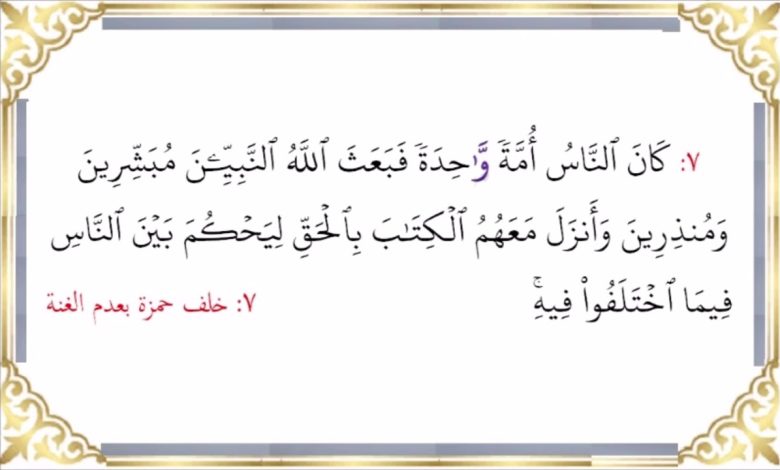 ٧: كَانَ ٱلنَّاسُ أُمَّةٗ وَّٰحِدَةٗ فَبَعَثَ ٱللَّهُ ٱلنَّبِيِّـۧنَ مُبَشِّرِينَ
وَمُنذِرِينَ وَأَنزَلَ مَعَهُمُ ٱلۡكِتَٰبَ بِٱلۡحَقِّ لِيَحۡكُمَ بَيۡنَ ٱلنَّاسِ
فِيمَا ٱخۡتَلَفُواْ فِيهِۚ
٧: خلف حمزة بعدم الغنة